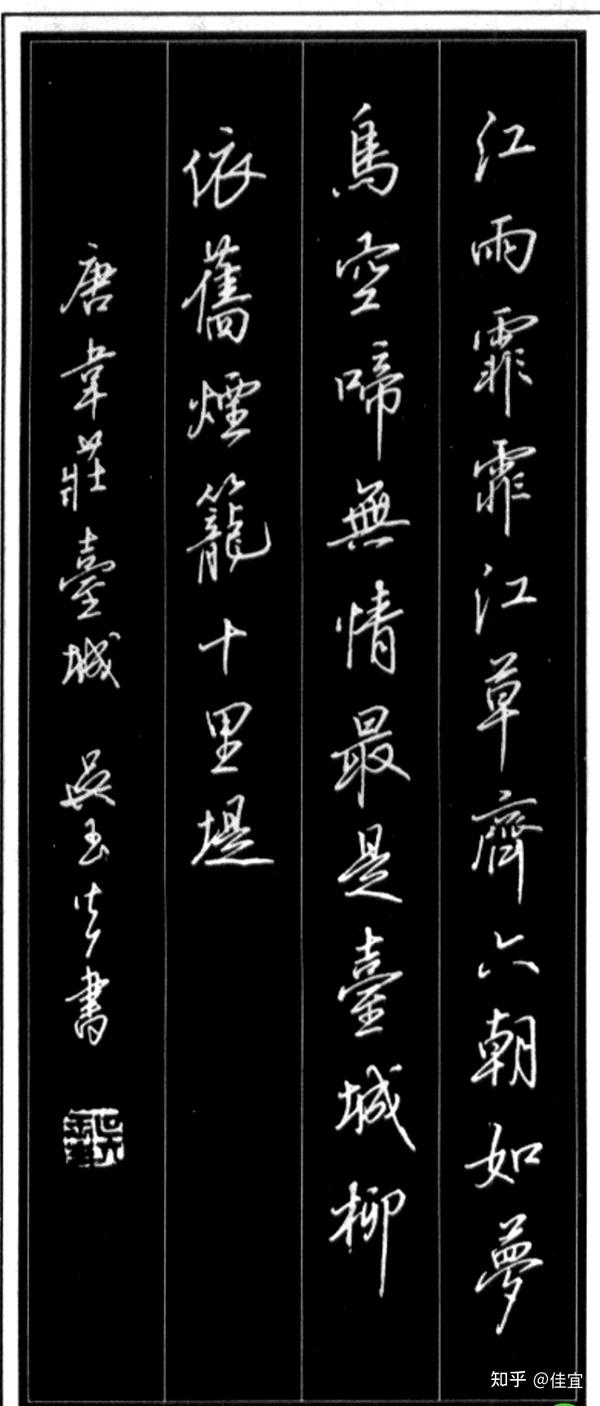 江雨霏霏江草齊六朝如夢
鳥空啼無情最是臺城柳
依舊煙籠十里堤
唐韋莊臺城 吳玉生書
知乎 @佳宜